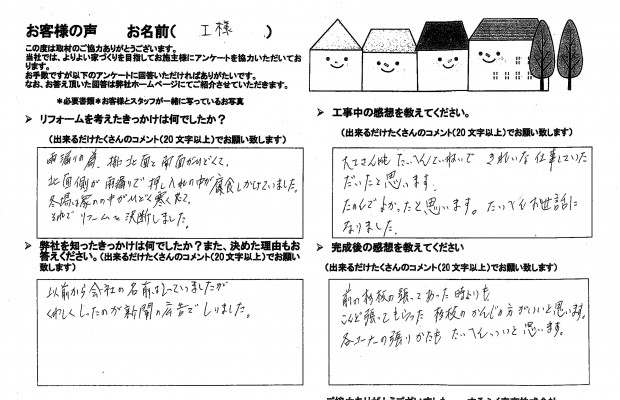 お客様の声 お名前( 工様 )
この度は取材のご協力ありがとうございます。
当社では、よりよい家づくりを目指してお施主様にアンケートを協力いただいてお
ります。
お手数ですが以下のアンケートに回答いただければありがたいです。
なお、お答え頂いた回答は弊社ホームページにてご紹介させていただきます。
*必要書類*お客様とスタッフが一緒に写っているお写真
➢ リフォームを考えたきっかけは何でしたか?
(出来るだけたくさんのコメント(20文字以上)でお願い致します)
雨漏りの為、 北面と南面がひどくて、
北面側が雨漏りで押し入れの中が腐食しかけていました。
冬場は家の中がひどく寒くて、
それでリフォームを決断しました。
➢ 弊社を知ったきっかけは何でしたか?また、決めた理由もお
答えください。(出来るだけたくさんのコメント(20文字以上)でお願い
致します)
以前から会社の名前は知っていましたが
くわしくしったのが新聞の広告でしりました。
➢ 工事中の感想を教えてください。
(出来るだけたくさんのコメント(20文字以上)でお願い致します)
大工さんもたいへんていねいで きれいな仕事していた
だいたと思います。
たのんでよかったと思います。たいへんお世話に
なりました。
➢ 完成後の感想を教えてください
(出来るだけたくさんのコメント(20文字以上)でお願い致します)
前の 板の張ってあった時よりも
こんど張ってもらった 板のかんじの方がいいと思います。
各コーナーの張りかたも たいへんいいと思います。